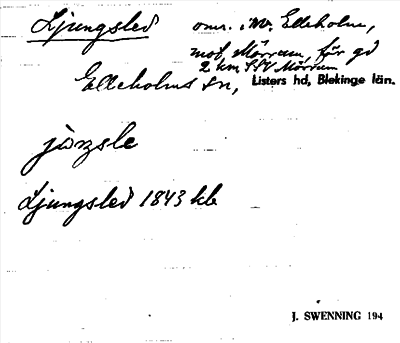 Ljungsled omr. i NV. Elleholm,
mot Mörrum, får gd
2 km SSV Mörrum
Elleholms sn, Listers hd, Blekinge län.
jùŋsle
Ljungsled 1843 kb
J. SWENNING 194